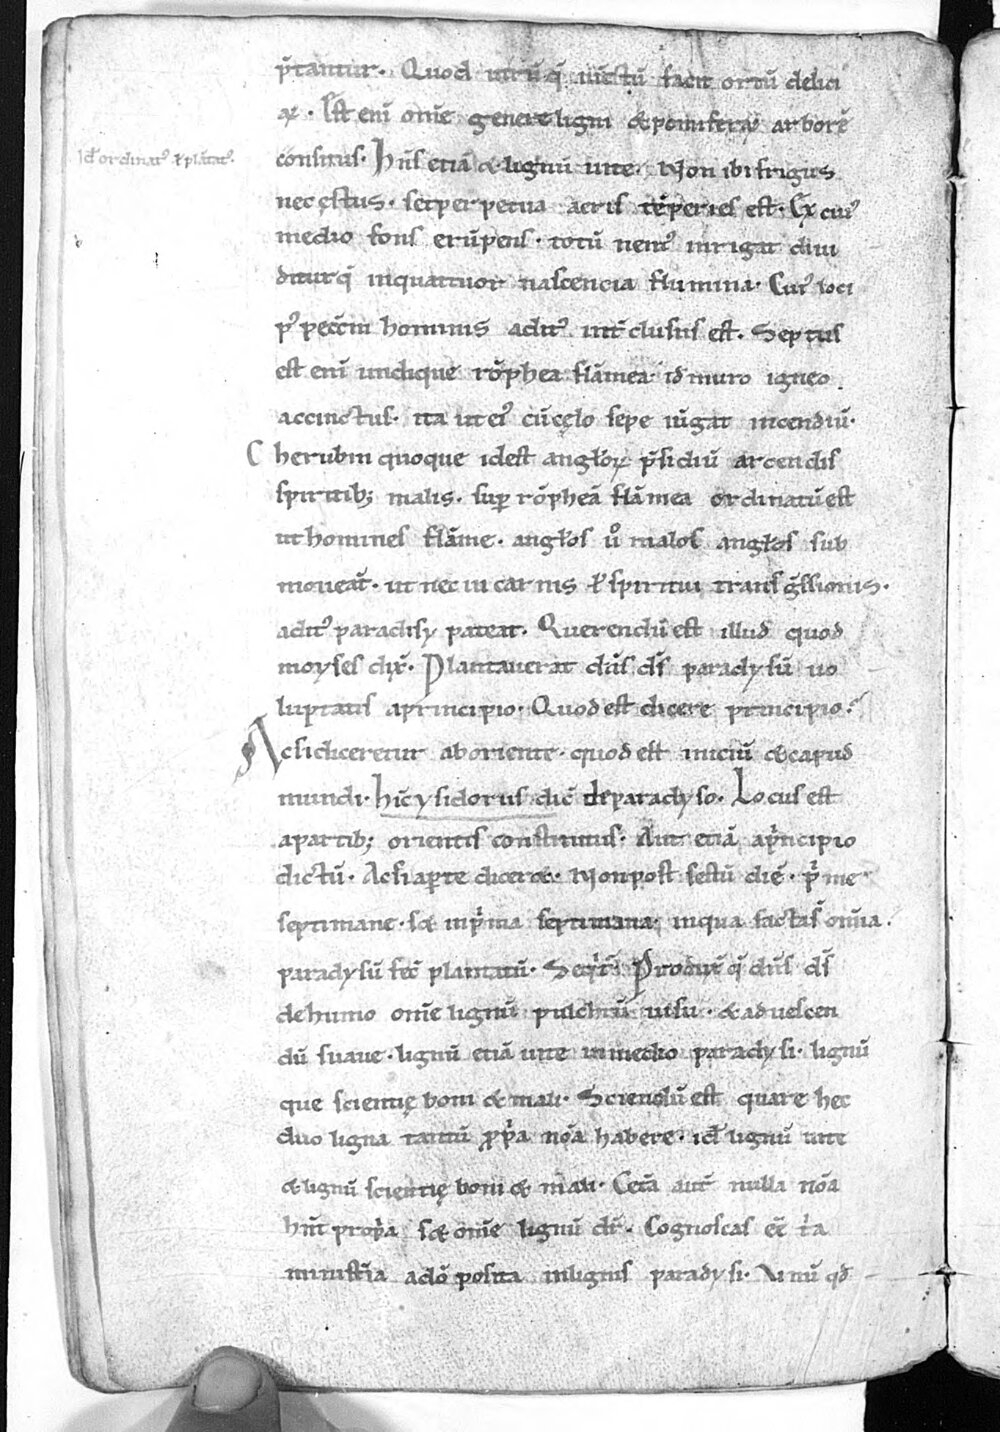 p̄tantur. Quod utrūq̄ iūctū facit ortū delici
aꝝ. Est enī om̄e genere ligni & pomiferaꝝ arborē
Id ordinat᷒ ł plātat᷒.
consitus. Hn̄s etiā & lignū uite. Non ibi frigus
nec ęstus. set perpetua aeris tēperies est. Ex cui᷒
medio fons erūpens. totū nem᷒ inrigat diui
diturq̄ inquattuor nascencia flumina. Cui᷒ loci
p᷒ peccm̄ hominis adit᷒ int̄clusus est. Septus
est enī undique rōphea flāmea id̄ muro igneo
accinctus. ita ut ei᷒ cū cęlo sepe iūgat incendiū.
Cherubin quoque idest angłoꝝ p̄sidiū arcendis
spiritib; malis. suꝑ rōpheā flāmea ordinatū est
ut homines flāme. angłos ū malos angłos sub
moueat̄. ut nec ui carnis ł spiritui transḡssionis.
adit᷒ paradisy pateat. Querendū est illud quod
moyses dix̄. Plantauerat dn̄s ds̄ paradysū uo
luptatis aprincipio. Quod est dicere principio?
Acsi diceretur aboriente. quod est iniciū & capud
mundi. hic̄ ysidorus dic̄ de paradyso. Locus est
apartib; orientis constitutus. Aut etiā ap̄ncipio
dictū. Acsi aperte dicer&. Non post sestū diē. p̄me
septimane. s& inp̄ma septimana. inqua facta s̄ om̄ia.
paradysū fec̄ plantatū. Seq̄t̄ Produx̄q̄ dn̄s ds̄
dehumo om̄e lignū pulchrū uisu. & ad uescen
dū suaue. lignū etiā uite in medio paradysi. lignū
que scientię boni & mali. Sciendū est quare hec
duo ligna tantū ꝓp̄a nōa habere. id̄ lignū uite
& lignū scientię boni & mali. Cet̄a aut̄ nulla nōa
hn̄t prop̄a s& om̄e lignū dr̄. Cognoscas ec̄ t̄a
minist̄ia adō posita inlignis paradysi. Vnū qd̄